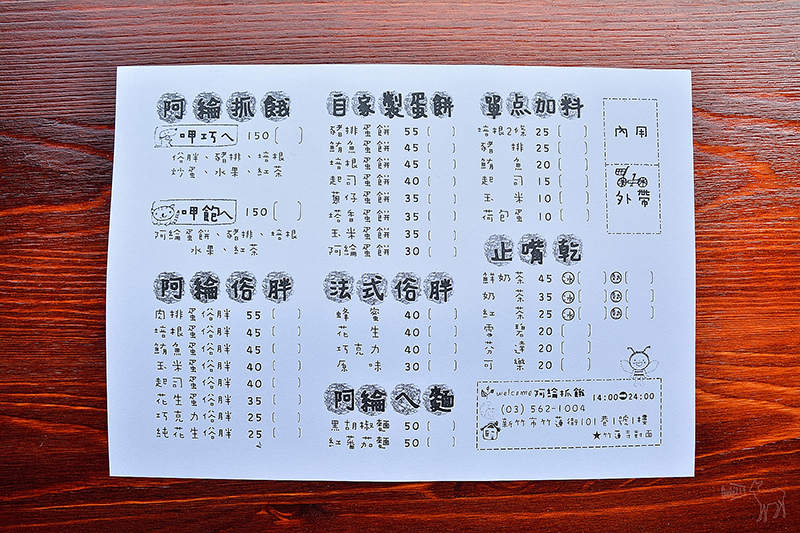 阿綸抓餓
呷巧ㄟ 150〔 〕
俗胖、豬排、培根
炒蛋、水果、紅茶
呷飽ㄟ 150〔 〕
阿綸蛋餅、豬排、培根
水果、紅茶
阿綸俗胖
肉排蛋俗胖 55〔 〕
培根蛋俗胖 45〔 〕
鮪魚蛋俗胖 45〔 〕
玉米蛋俗胖 40〔 〕
起司蛋俗胖 40〔 〕
花生蛋俗胖 35〔 〕
巧克力俗胖 25〔 〕
純花生俗胖 25〔 〕
自家製蛋餅
豬排蛋餅 55〔 〕
鮪魚蛋餅 45〔 〕
培根蛋餅 45〔 〕
起司蛋餅 40〔 〕
蔥仔蛋餅 35〔 〕
塔香蛋餅 35〔 〕
玉米蛋餅 35〔 〕
阿綸蛋餅 30〔 〕
法式俗胖
蜂蜜 40〔 〕
花生 40〔 〕
巧克力 40〔 〕
原味 30〔 〕
阿綸ㄟ麵
黑胡椒麵 50〔 〕
紅蕃茄麵 50〔 〕
單点加料
培根2條 25〔 〕
豬排 25〔 〕
鮪魚 20〔 〕
起司 15〔 〕
玉米 10〔 〕
荷包蛋 10〔 〕
止嘴乾
鮮奶茶 45 冰〔 〕熱〔 〕
奶茶 35 冰〔 〕熱〔 〕
紅茶 25 冰〔 〕熱〔 〕
雪碧 20〔 〕
芬達 20〔 〕
可樂 20〔 〕
內用
外帶
welcome 阿綸抓餓 14:00➡24:00
(03) 562-1004
新竹市竹蓮街101巷1號1樓
★竹蓮寺對面